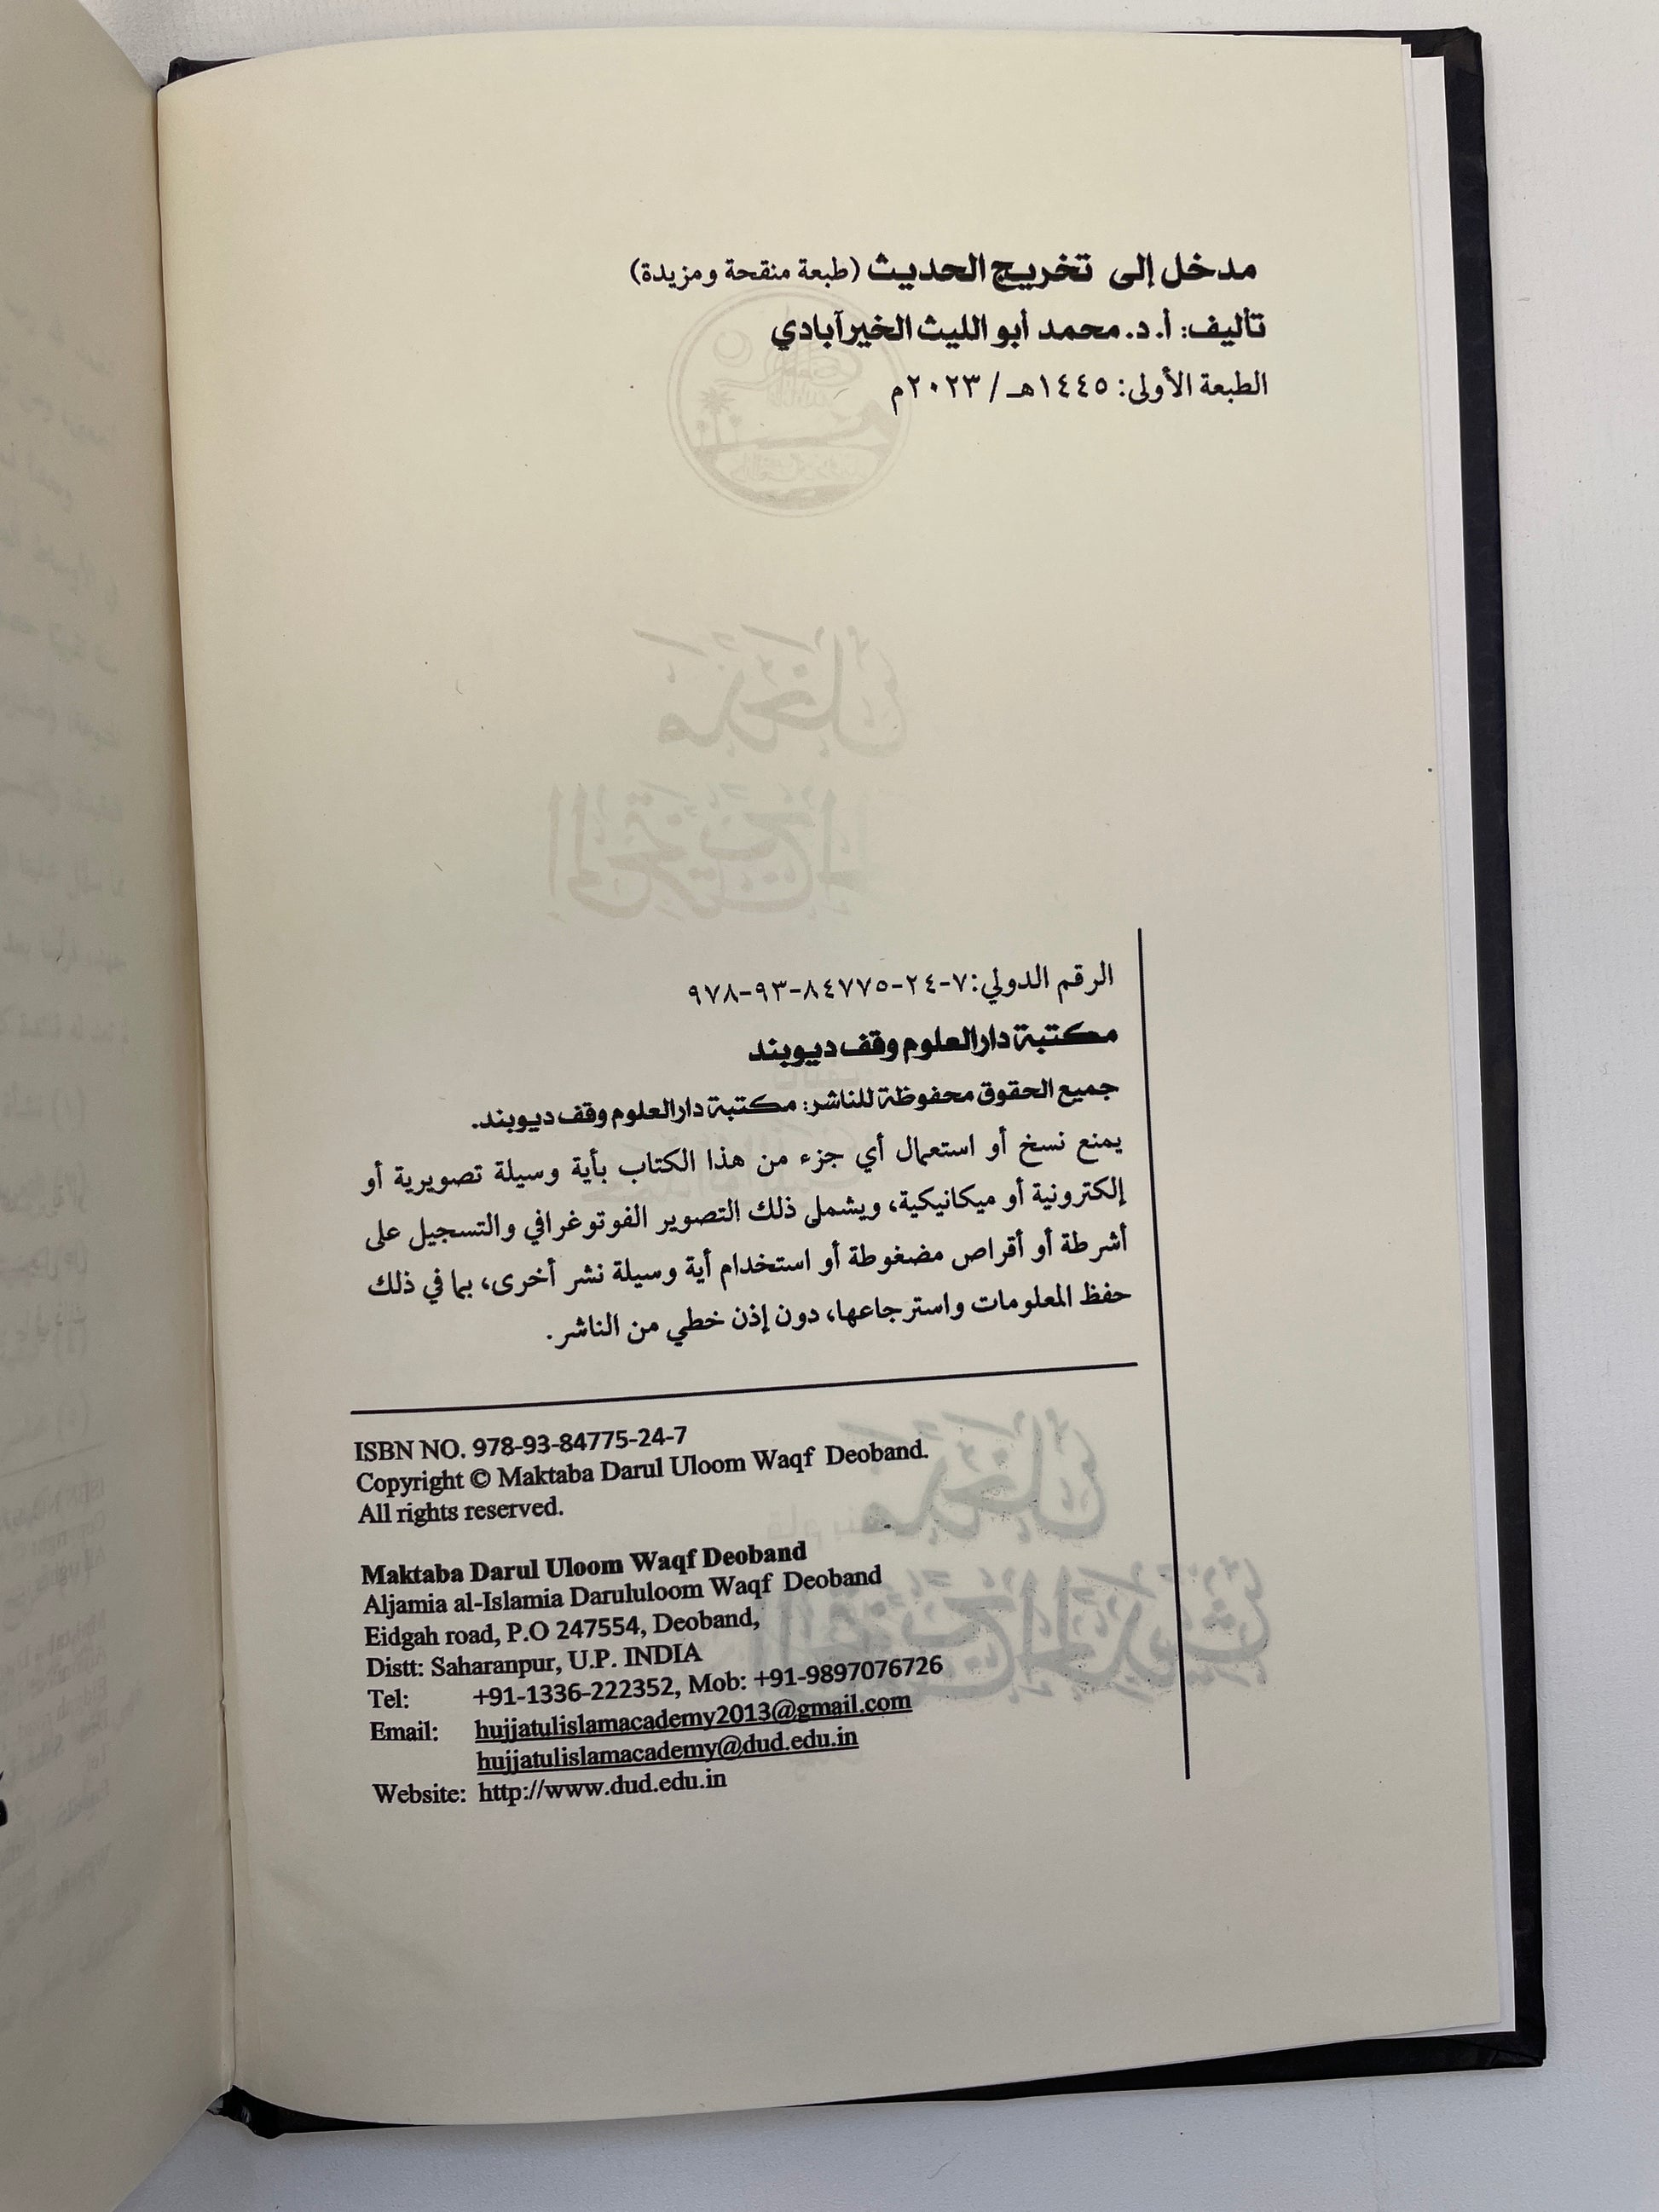 مدخل إلى تخريج الحديث (طبعة منقحة ومزيدة)
تأليف: أ. د. محمد أبو الليث الخيرآبادي
الطبعة الأولى: ١٤٤٥هـ / ٢٠٢٣م
الرقم الدولي: ٧-٢٤-٨٤٧٧٥-٩٣-٩٧٨
مكتبة دارالعلوم وقف ديوبند
جميع الحقوق محفوظة للناشر: مكتبة دارالعلوم وقف ديوبند.
يمنع نسخ أو استعمال أي جزء من هذا الكتاب بأية وسيلة تصويرية أو
إلكترونية أو ميكانيكية، ويشملى ذلك التصوير الفوتوغرافي والتسجيل على
أشرطة أو أقراص مضغوطة أو استخدام أية وسيلة نشر أخرى، بما في ذلك
حفظ المعلومات واسترجاعها، دون إذن خطي من الناشر.
ISBN NO. 978-93-84775-24-7
Copyright © Maktaba Darul Uloom Waqf Deoband.
All rights reserved.
Maktaba Darul Uloom Waqf Deoband
Aljamia al-Islamia Darululoom Waqf Deoband
Eidgah road, P.O 247554, Deoband,
Distt: Saharanpur, U.P. INDIA
Tel: +91-1336-222352, Mob: +91-9897076726
Email: hujjatulislamacademy2013@gmail.com
hujjatulislamacademy@dud.edu.in
Website: http://www.dud.edu.in